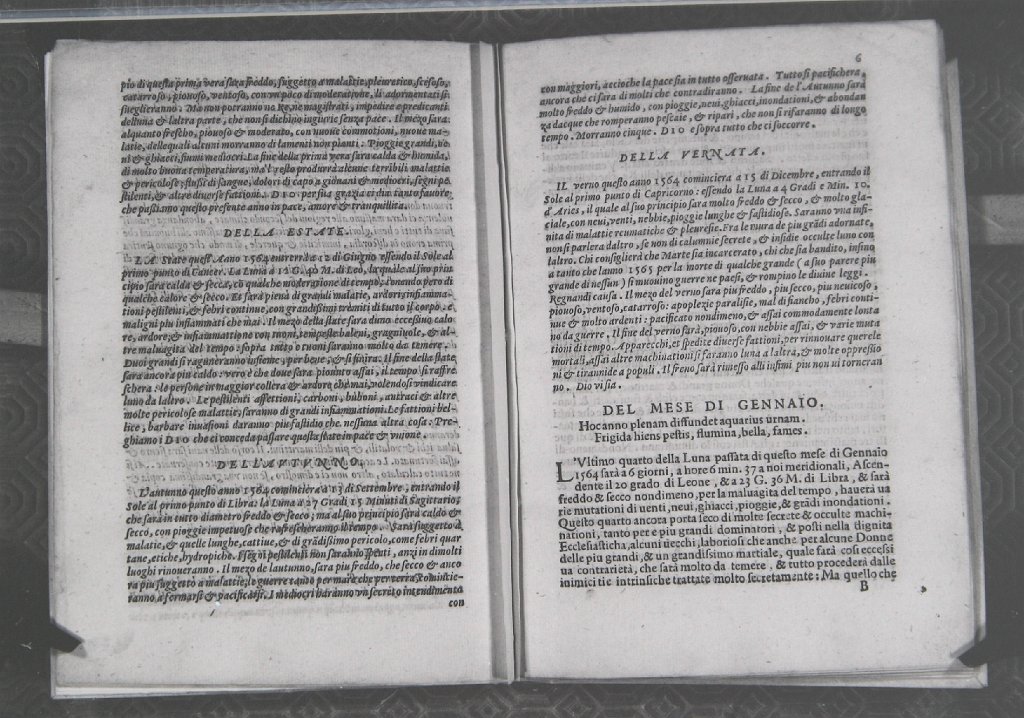 pio di questa prima vera sara freddo, suggetto a malattie, pleuretico, scesoso,
catarroso, piouoso, ventoso, con vn poco di moderatione, li adormentati si
sueglieranno. Ma non potranno ne Re, ne magistrati, impedire e predicanti
delluna & laltra parte, che non si dichino ingiurie senza pace. Il mezo sara
alquanto frescho, piouoso & moderato, con nuoue commotioni, nuoue ma-
latie, delle quali alcuni morranno di lamenti non pianti. Pioggie grandi, ue-
ni & ghiacci, fiumi mediocri. La fine della prima vera sara calda & humida,
di molto buona temperatura, ma'l resto produrrà alcune terribili malattie
& pericolose, flussi di sangue, dolori di capo a giouani & mediocri, segni pe-
stilenti, & altre diuerse fattioni. DIO per sua gratia ci dia tanto fauore,
che passiamo questo presente anno in pace, amore & tranquillita.
DELLA ESTATE.
LA State quest'Anno 1564 entrerà a 12 di Giugno essendo il Sole al
primo punto di Cancer. La Luna à 12 G. 40 M. di Leo, la quale al suo prin
cipio sara calda & secca, cō qualche moderatione di tempo, tonendo pero di
qualche calore & secco. Et sarà piena di grandi malatie, ardori, infiamma-
tioni pestilenti, & febri continue, con grandissimi tremiti di tutto il corpo, e
maligni piu infiammati che mai. Il mezo della state sara duno eccessiuo calo
re, ardore, & infiammattione con tuoni, tempeste, baleni, gragniuole, & al-
tre maluagita del tempo: sopra tutto e tuoni saranno molto da temere.
Duoi grandi si raguneranno insieme, per bene, & si finira. Il fine della state
sarà ancora piu caldo: vero è che doue sara piouuto assai, il tempo si raffre
schera: le persone in maggior collera & ardore che mai, volendosi vindicare
luno da laltro. Le pestilenti affettioni, carboni, buboni, antraci & altre
molte pericolose malattie, saranno di grandi infiammationi. Le fattioni bel-
lice, barbare inuasioni daranno piu fastidio che nessuna altra cosa: Pre-
ghiamo i DIO che ci conceda passare questa state in pace & vnione.
DELL'AVTVNNO.
L'autunno questo anno 1564 comincierà a 13 di Settembre, entrando il
Sole al primo punto di Libra: la Luna à 27 Gradi 15 Minuti di Sagittario,
che sarà in tutto diametro freddo & secco; ma al suo principio sarà caldo &
secco, con pioggie impetuose che rafrescheranno il tempo. Sarà suggetto à
malatie, & quelle lunghe, cattiue, & di grādissimo pericolo, come febri quar
tane, etiche, hydropiche. I segni pestilenti non saranno spenti, anzi in dimolti
luoghi rinoueranno. Il mezo de lautunno, sara piu freddo, che secco & anco
ra piu suggetto a malattie, le guerre tanto per mare che per terra, comincie-
ranno a fermarsi & pacificarsi. I mediocri haranno vn secreto intendimento
con
6
con maggiori, accioche la pace sia in tutto osseruata. Tutto si pacificherà,
ancora che ci sara di molti che contradiranno. La fine de l'Autunno sarà
molto freddo & humido, con pioggie, neui, ghiacci, inondationi, & abondan
za dacque che romperanno pescaie, & ripari, che non si rifaranno di longo
tempo. Morranno cinque. DIO e sopra tutto che ci soccorre.
DELLA VERNATA.
IL verno questo anno 1564 comincierà a 15 di Dicembre, entrando il
Sole al primo punto di Capricorno: essendo la Luna a 4 Gradi e Min. 10.
d'Aries, il quale al suo principio sara molto freddo & secco, & molto gla-
ciale, con neui, venti, nebbie, pioggie lunghe & fastidiose. Saranno vna infi-
nita di malattie reumatiche & pleuresie. Fra le mura de piu grādi adornate,
non si parlera daltro, se non di calumnie secrete, & insidie occulte luno con
laltro. Chi consiglierà che Marte sia incarcerato, chi che sia bandito, infino
a tanto che lanno 1565 per la morte di qualche grande (a suo parere piu
grande di nessun) si muouino guerre ne paesi, & rompino le diuine leggi.
Regnandi causa. Il mezo del verno sara piu freddo, piu secco, piu neuicoso,
piouoso, ventoso, catarroso: apoplezie paralisie, mal di fiancho, febri conti-
nue & molto ardenti: pacificato nondimeno, & assai commodamente lonta
no da guerre. Il fine del verno sarà, piouoso, con nebbie assai, & varie muta
tioni di tempo. Apparecchi, et spedite diuerse fattioni, per rinnouare querele
mortali, assai altre machinationi si faranno luna a laltra, & molte oppressio
ni & tirannide a populi. Il freno sarà rimesso alli infimi piu non ui torneran
no. Dio vi sia.
DEL MESE DI GENNAIO.
Hoc anno plenam diffundet aquarius urnam.
Frigida hiens pestis, flumina, bella, fames.
L'Vltimo quarto della Luna passata di questo mese di Gennaio
1564 sarà a 6 giorni, a hore 6 min. 37 a noi meridionali, Ascen-
dente il 20 grado di Leone, & a 23 G. 36 M. di Libra, & sarà
freddo & secco nondimeno, per la maluagita del tempo, hauerà ua
rie mutationi di uenti, neui, ghiacci, pioggie, & grādi inondationi.
Questo quarto ancora porta seco di molte secrete & occulte machi-
nationi, tanto per e piu grandi dominatori, & posti nella dignita
Ecclesiasticha, alcuni uecchi, laboriosi che anche per alcune Donne
delle piu grandi, & un grandissimo martiale, quale farà cosi eccessi
ua contrarietà, che sarà molto da temere, & tutto procederà dalle
inimicitie intrinsiche trattate molto secretamente: Ma quello che
B